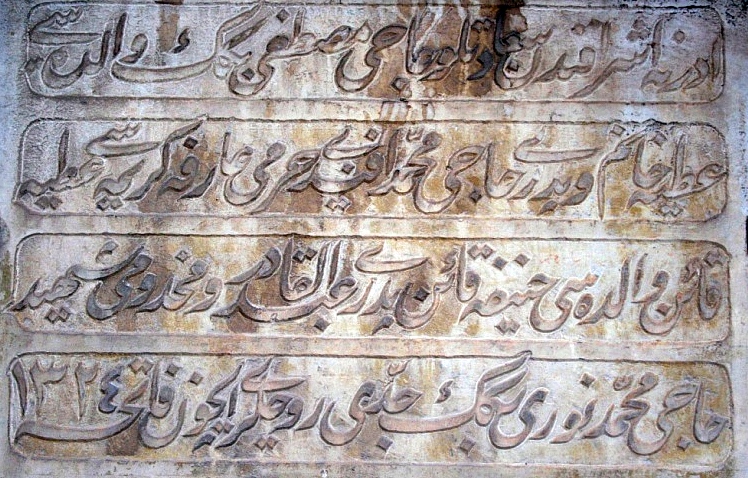 ادرنه اشرافندن حاجی مصطفی بگك والده سی
عطیه خانم و پدری حاجی محمد افندی حرمی عارفه کریمه سی عطیه
قائن والده سی حنیفه قائن پدری عبد القادر و مخدومی شهید
حاجی محمد نوری بگك جدلری روحلری ایچون فاتحه ١٣٢٤